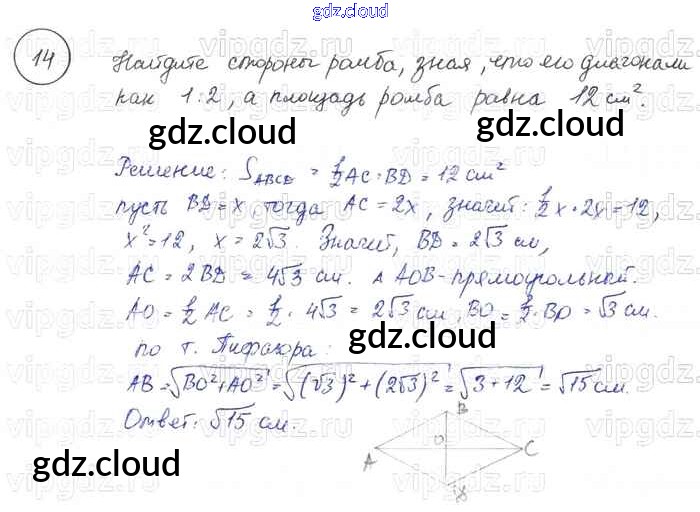 gdz.cloud
14
Найдите стороны ромба, зная, что его диагонали
как 1:2, а площадь ромба равна 12 см².
gdz.cloud
gdz.cloud
Решение: S_ABCD = 1/2 AC · BD = 12 см²
пусть BD = x, тогда AC = 2x, значит: 1/2 x · 2x = 12,
x² = 12, x = 2√3. Значит, BD = 2√3 см,
AC = 2BD = 4√3 см. △ AOB - прямоугольной.
AO = 1/2 AC = 1/2 · 4√3 = 2√3 см, BO = 1/2 · BD = √3 см.
по т. Пифагора:
gdz.cloud
AB = √BO² + AO² = √(√3)² + (2√3)² = √3 + 12 = √15 см.
Ответ: √15 см.
B
O
A
C
gdz.cloud
gdz.cloud